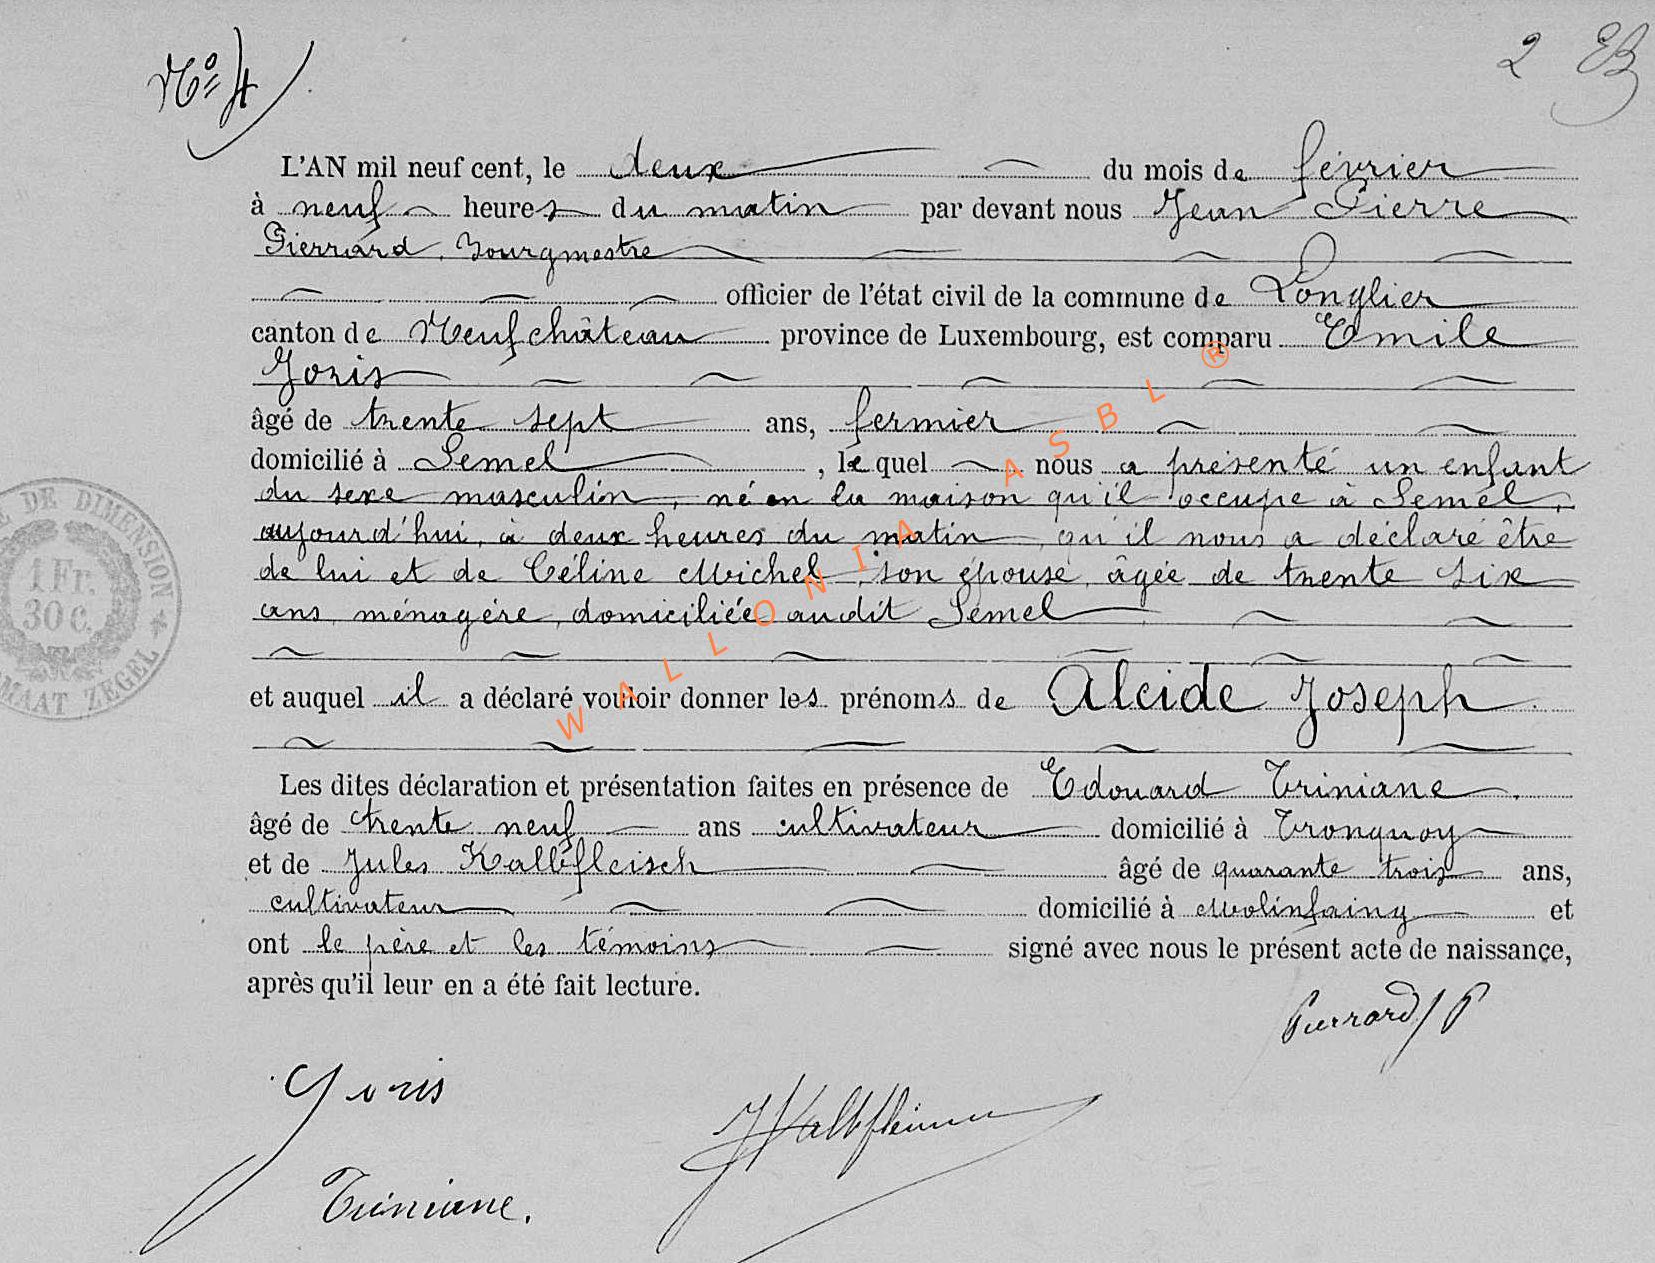 Nº 4
2 EB
L'AN mil neuf cent, le deux du mois de février
à neuf heures du matin par devant nous Jean Pierre
Pierrard, Bourgmestre
officier de l'état civil de la commune de Longlier
canton de Neufchâteau province de Luxembourg, est comparu Emile
Joris
âgé de trente sept ans, fermier
domicilié à Semel, lequel nous a présenté un enfant
du sexe masculin, né en la maison qu'il occupe à Semel,
aujourd'hui, à deux heures du matin, qu'il nous a déclaré être
de lui et de Céline Michel, son épouse, âgée de trente six
ans, ménagère, domiciliée audit Semel
et auquel il a déclaré vouloir donner les prénoms de Alcide Joseph
Les dites déclaration et présentation faites en présence de Edouard Triniane
âgé de trente neuf ans cultivateur domicilié à Tronquoy
et de Jules Kalbfleisch âgé de quarante trois ans,
cultivateur domicilié à Molinfaing et
ont le père et les témoins signé avec nous le présent acte de naissance,
après qu'il leur en a été fait lecture.
Pierrard JP
Joris
JKalbfleisch
Triniane.
DE DIMENSION
1 Fr.
30 c.
MAAT ZEGEL
WALLONIA ASBL ®